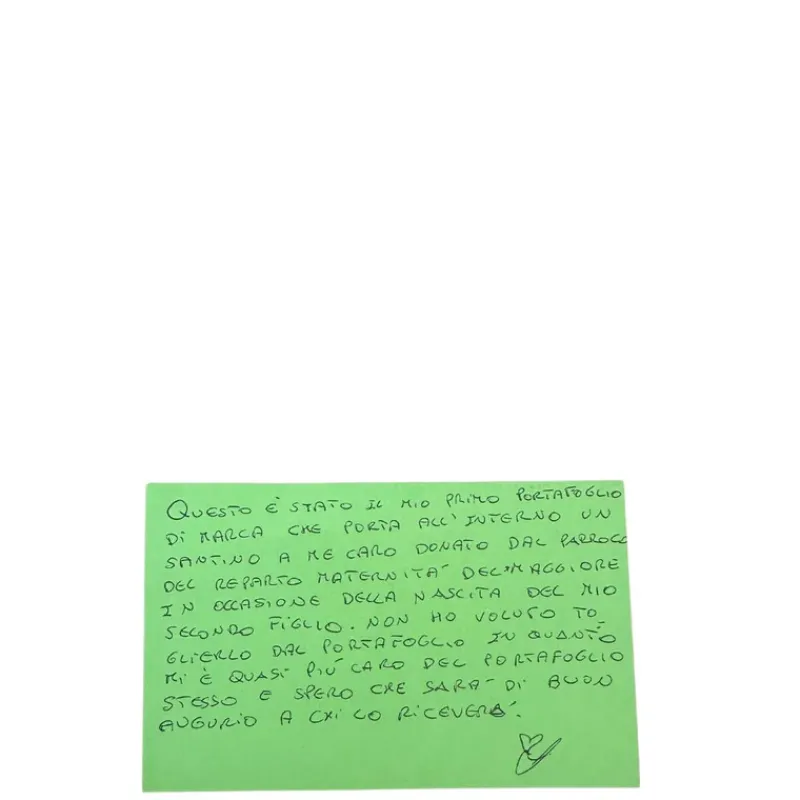 QUESTO È STATO IL MIO PRIMO PORTAFOGLIO
DI MARCA CHE PORTA ALL'INTERNO UN
SANTINO A ME CARO DONATO DAL PARROCO
DEL REPARTO MATERNITA' DEL MAGGIORE
IN OCCASIONE DELLA NASCITA DEL MIO
SECONDO FIGLIO. NON HO VOLUTO TO
GLIERLO DAL PORTAFOGLIO IN QUANTO
MI È QUASI PIÙ CARO DEL PORTAFOGLIO
STESSO E SPERO CHE SARA' DI BUON
AUGURIO A CHI LO RICEVERÀ.